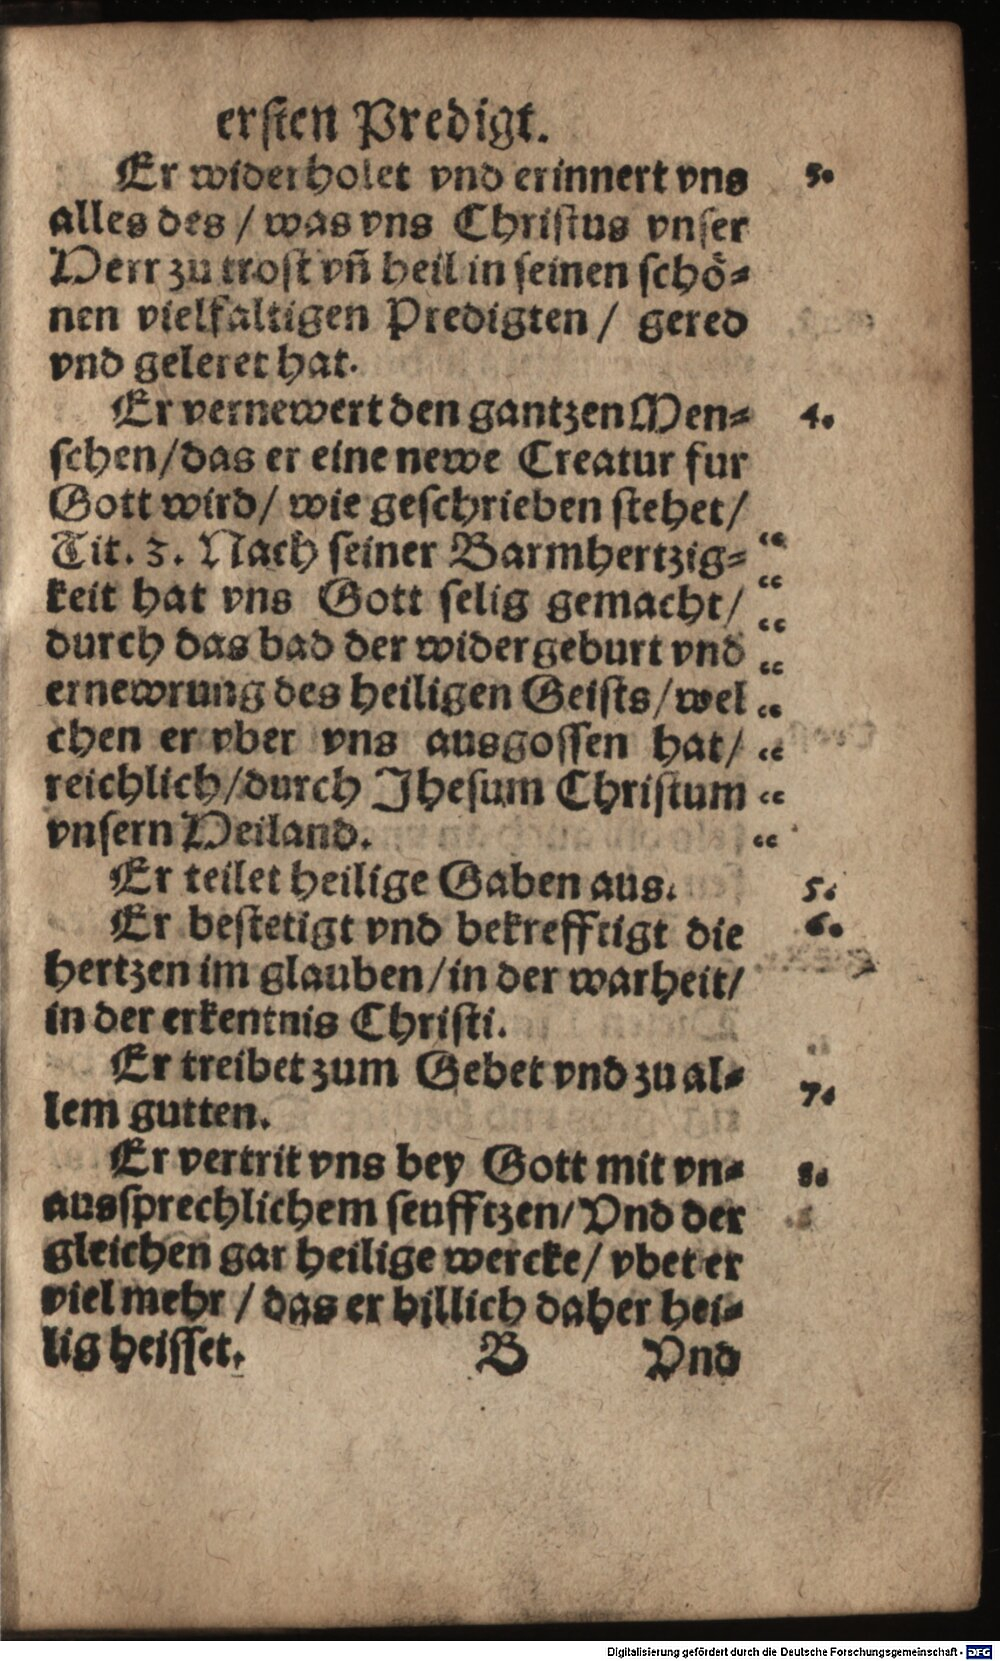 ersten Predigt.
Er widerholet vnd erinnert vns 5.
alles des / was vns Christus vnser
Herr zu trost vñ heil in seinen schö-
nen vielfaltigen Predigten / gered
vnd geleret hat.
Er vernewert den gantzen Men- 4.
schen/das er eine newe Creatur fur
Gott wird/ wie geschrieben stehet/
Tit. 3. Nach seiner Barmhertzig- “
keit hat vns Gott selig gemacht/ “
durch das bad der widergeburt vnd “
ernewrung des heiligen Geists/wel “
chen er vber vns ausgossen hat/ “
reichlich/durch Jhesum Christum “
vnsern Heiland. “
Er teilet heilige Gaben aus. 5.
Er bestetigt vnd bekrefftigt die 6.
hertzen im glauben/in der warheit/
in der erkentnis Christi.
Er treibet zum Gebet vnd zu al-
lem gutten. 7.
Er vertrit vns bey Gott mit vn- 8.
aussprechlichem seufftzen/Vnd der
gleichen gar heilige wercke/ vbet er
viel mehr / das er billich daher hei-
lig heisset. B Vnd
Digitalisierung gefördert durch die Deutsche Forschungsgemeinschaft - DFG